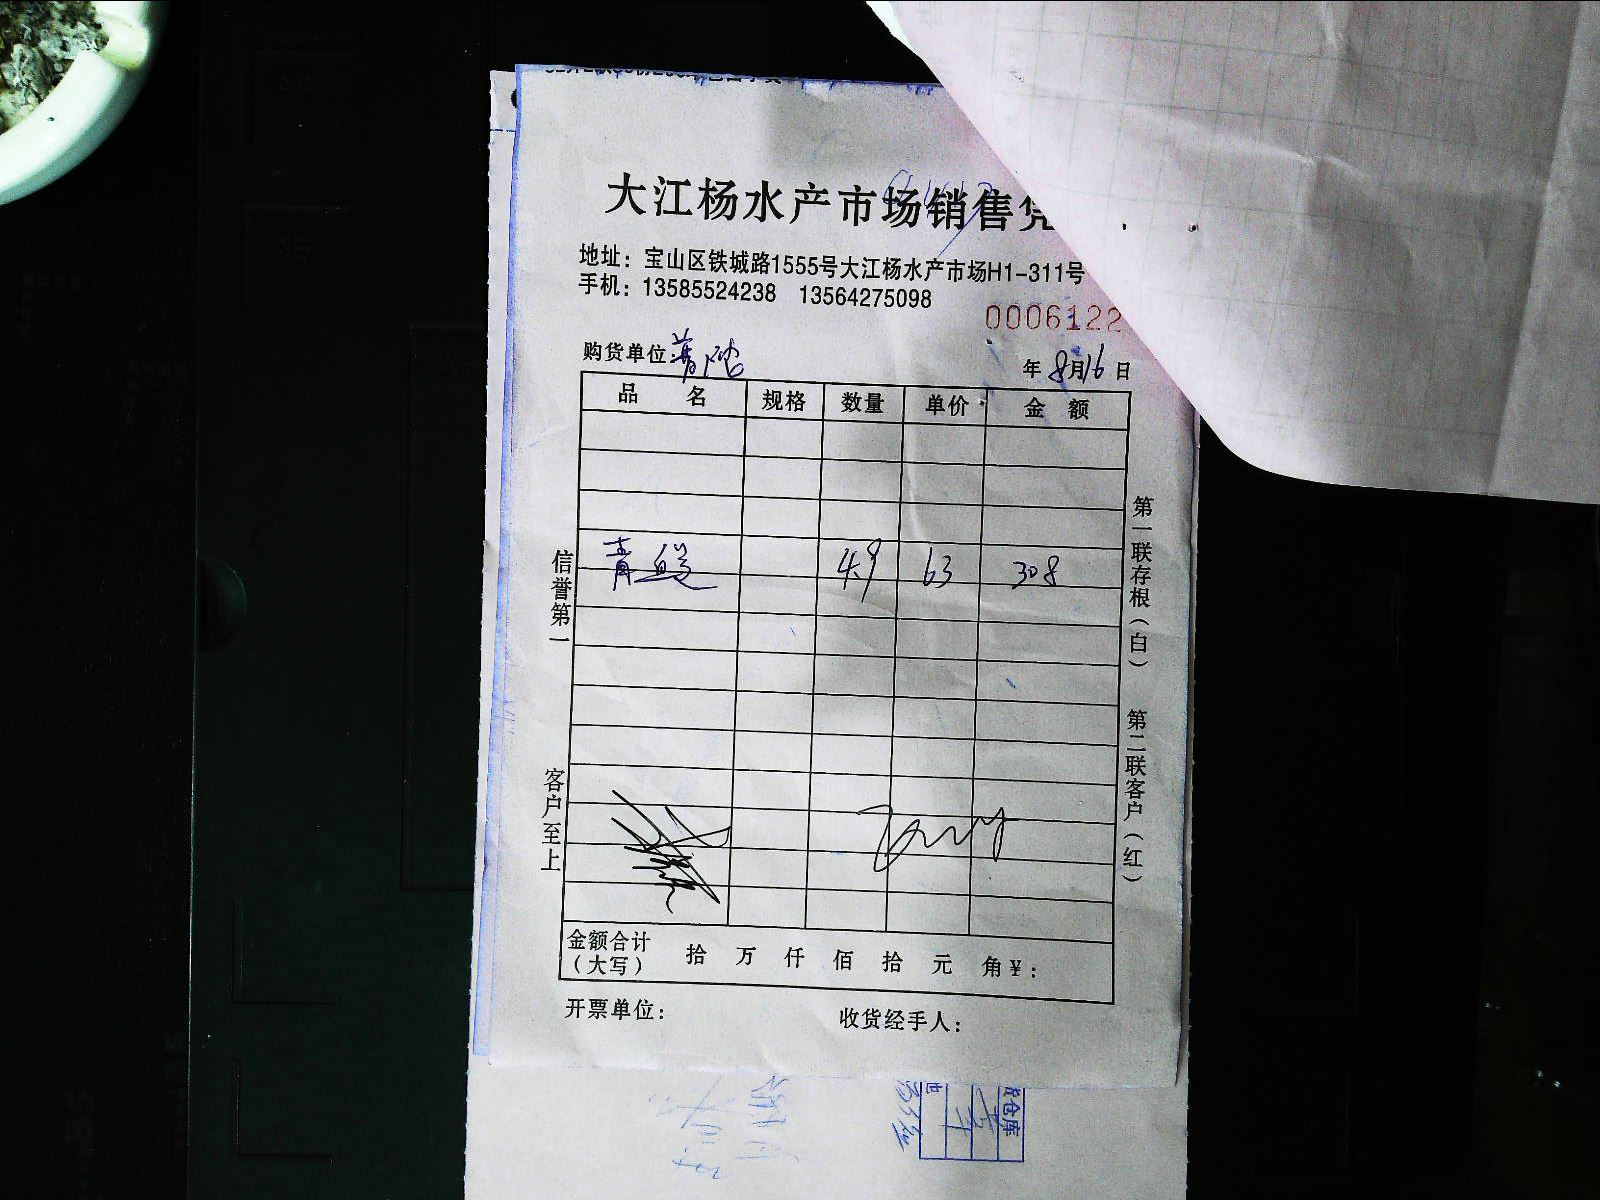 大江杨水产市场销售凭
地址：宝山区铁城路1555号大江杨水产市场H1-311号
手机：13585524238 13564275098
0006122
购货单位：
年 8月16日
品 名 规格 数量 单价 金 额
青 4.9 63 308
信誉第一
客户至上
第一联存根（白）
第二联客户（红）
金额合计（大写） 拾 万 仟 佰 拾 元 角¥：
开票单位： 收货经手人：
仓库